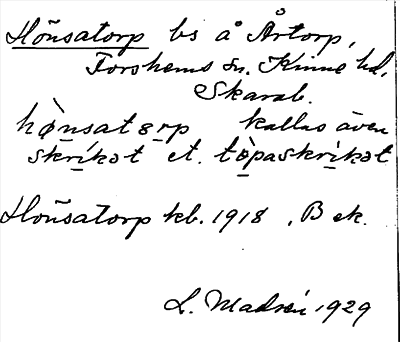 Hönsatorp bs å Årtorp,
Forshems sn. Kinne hd,
Skarab.
hø̀nsatərp kallas även
skrikət el. tòpaskrikət
Hönsatorp kb. 1918, B ek.
L. Madsén 1929